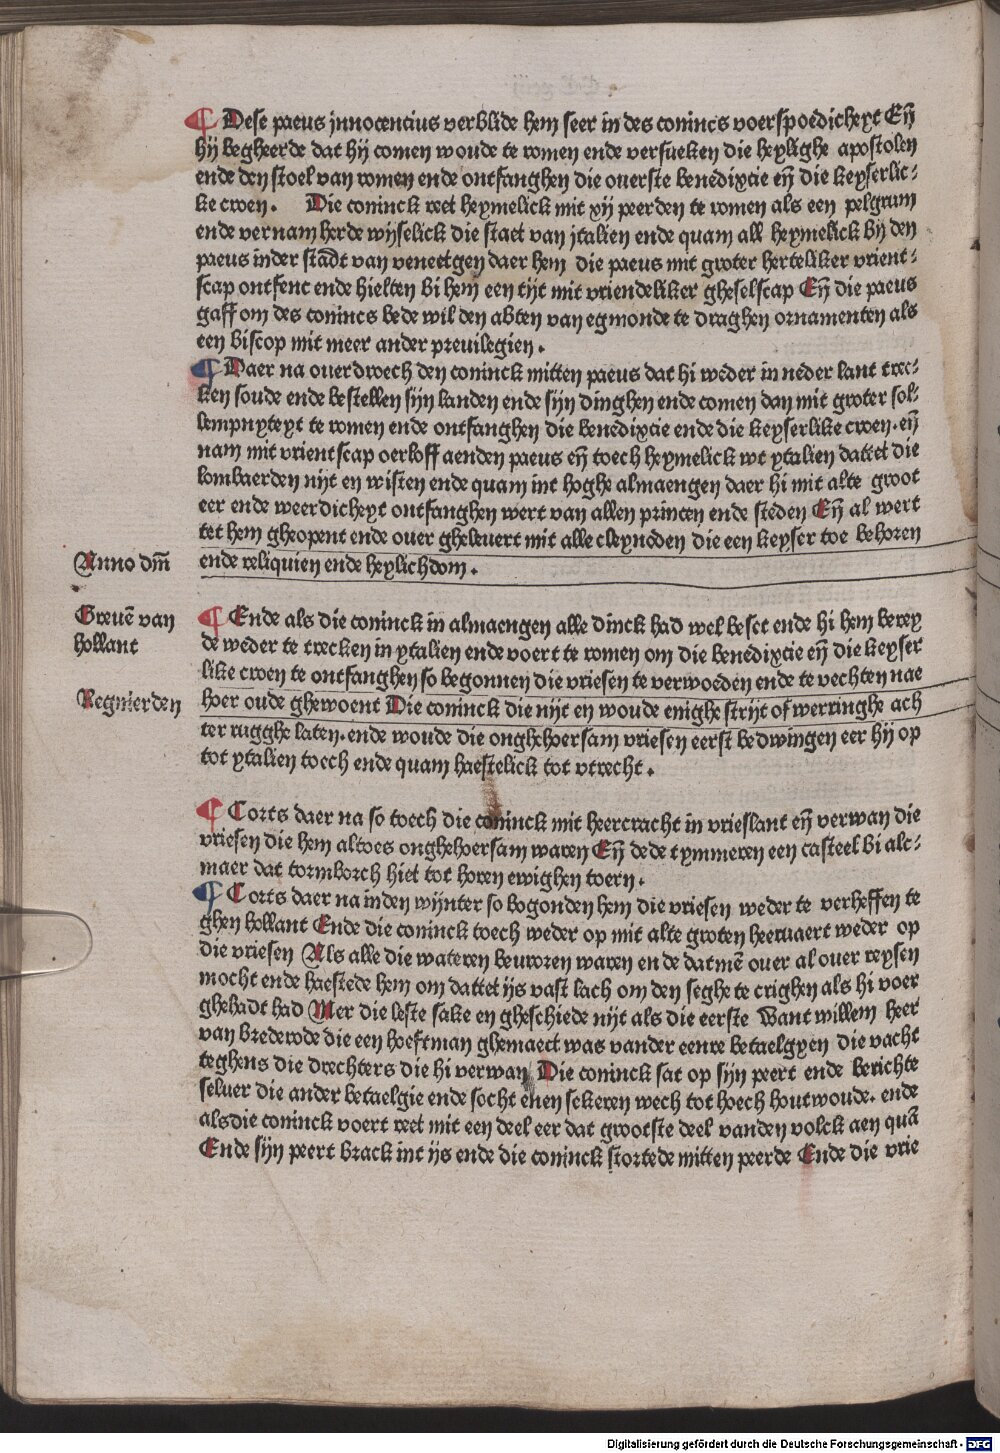 ¶ Dese paeus jnnocencius verblide hem seer in des conincs voerspoedicheyt Eñ
hij begheerde dat hij comen woude te romen ende versueken die heylighe apostolen
ende den stoel van romen ende ontfanghen die ouerste benedixcie eñ die keyserlic-
ke croen. Die coninck reet heymelick mit xij peerden te romen als een pelgrum
ende vernam herde wijselick die staet van jtalien ende quam all heymelick bij den
paeus inder stadt van veneetgen daer hem die paeus mit groter herteliker vrient-
scap ontfenc ende hielten bi hem een tijt mit vriendeliker gheselscap Eñ die paeus
gaff om des conincs bede wil den abten van egmonde te draghen ornamenten als
een biscop mit meer ander preuilegien.
¶ Daer na ouerdroech den coninck mitten paeus dat hi weder in neder lant trec-
ken soude ende bestellen sijn landen ende sijn dinghen ende comen dan mit groter sol-
lempnyteyt te romen ende ontfanghen die benedixcie ende die keyserlike croen. eñ
nam mit vrientscap oerloff aenden paeus eñ toech heymelick wt ytalien dattet die
lombaerden nijt en wisten ende quam int hoghe almaengen daer hi mit alte groot
eer ende weerdicheyt ontfanghen wert van allen princen ende steden Eñ al wert
tet hem gheopent ende ouer gheleuert mit alle cleynoden die een keyser toe behoren
Anno dm̄
ende reliquien ende heylichdom.
Greuē van
hollant
¶ Ende als die coninck in almaengen alle dinck had wel beset ende hi hem berey
de weder te trecken in ytalien ende voert te romen om die benedixcie eñ die keyser
like croen te ontfanghen so begonnen die vriesen te verwoeden ende te vechten nae
Regnierden
hoer oude ghewoent Die coninck die nijt en woude enighe strijt of werringhe ach
ter rugghe laten. ende woude die onghehoersam vriesen eerst bedwingen eer hij op
tot ytalien toech ende quam haestelick tot vtrecht.
¶ Corts daer na so toech die coninck mit heercracht in vrieslant eñ verwan die
vriesen die hem altoes onghehoersam waren Eñ dede tymmeren een casteel bi alc-
maer dat tormborch hiet tot horen ewighen toern.
¶ Corts daer na inden wijnter so bogonden hem die vriesen weder te verheffen te
ghen hollant Ende die coninck toech weder op mit alte groten heeruaert weder op
die vriesen Als alle die wateren beuroren waren ende datmē ouer al ouer reysen
mocht ende haestede hem om dattet ijs vast lach om den seghe te crighen als hi voer
ghehadt had Mer die leste sake en gheschiede nijt als die eerste Want willem heer
van brederode die een hoeftman ghemaect was vander eenre betaelgyen die vacht
teghens die drechters die hi verwan Die coninck sat op sijn peert ende berichte
seluer die ander betaelgie ende socht enen sekeren wech tot hoech houtwoude. ende
alsdie coninck voert reet mit een deel eer dat grootste deel vanden volck aen quā
Ende sijn peert brack int ijs ende die coninck stortede mitten peerde Ende die vrie
Digitalisierung gefördert durch die Deutsche Forschungsgemeinschaft - DFG